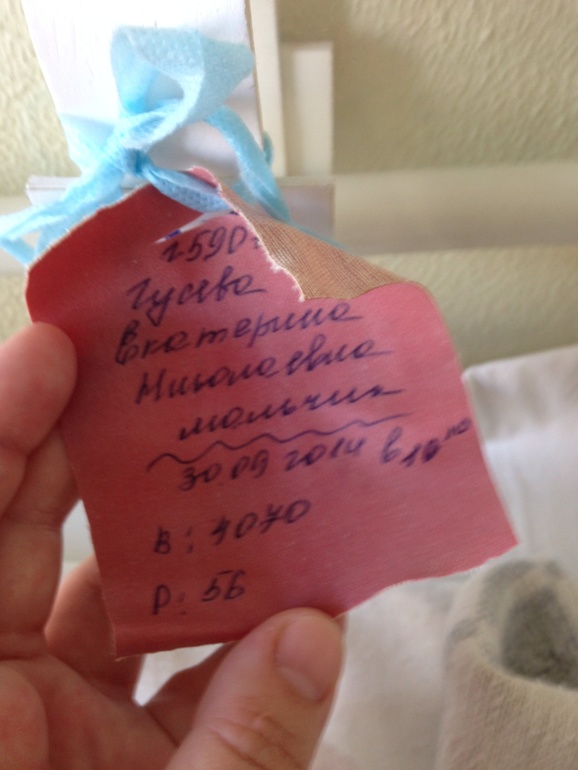 г590
Гусева
Екатерина
Николаевна
мальчик
30 09 2014 в 10¹⁰
В: 4070
Р: 56